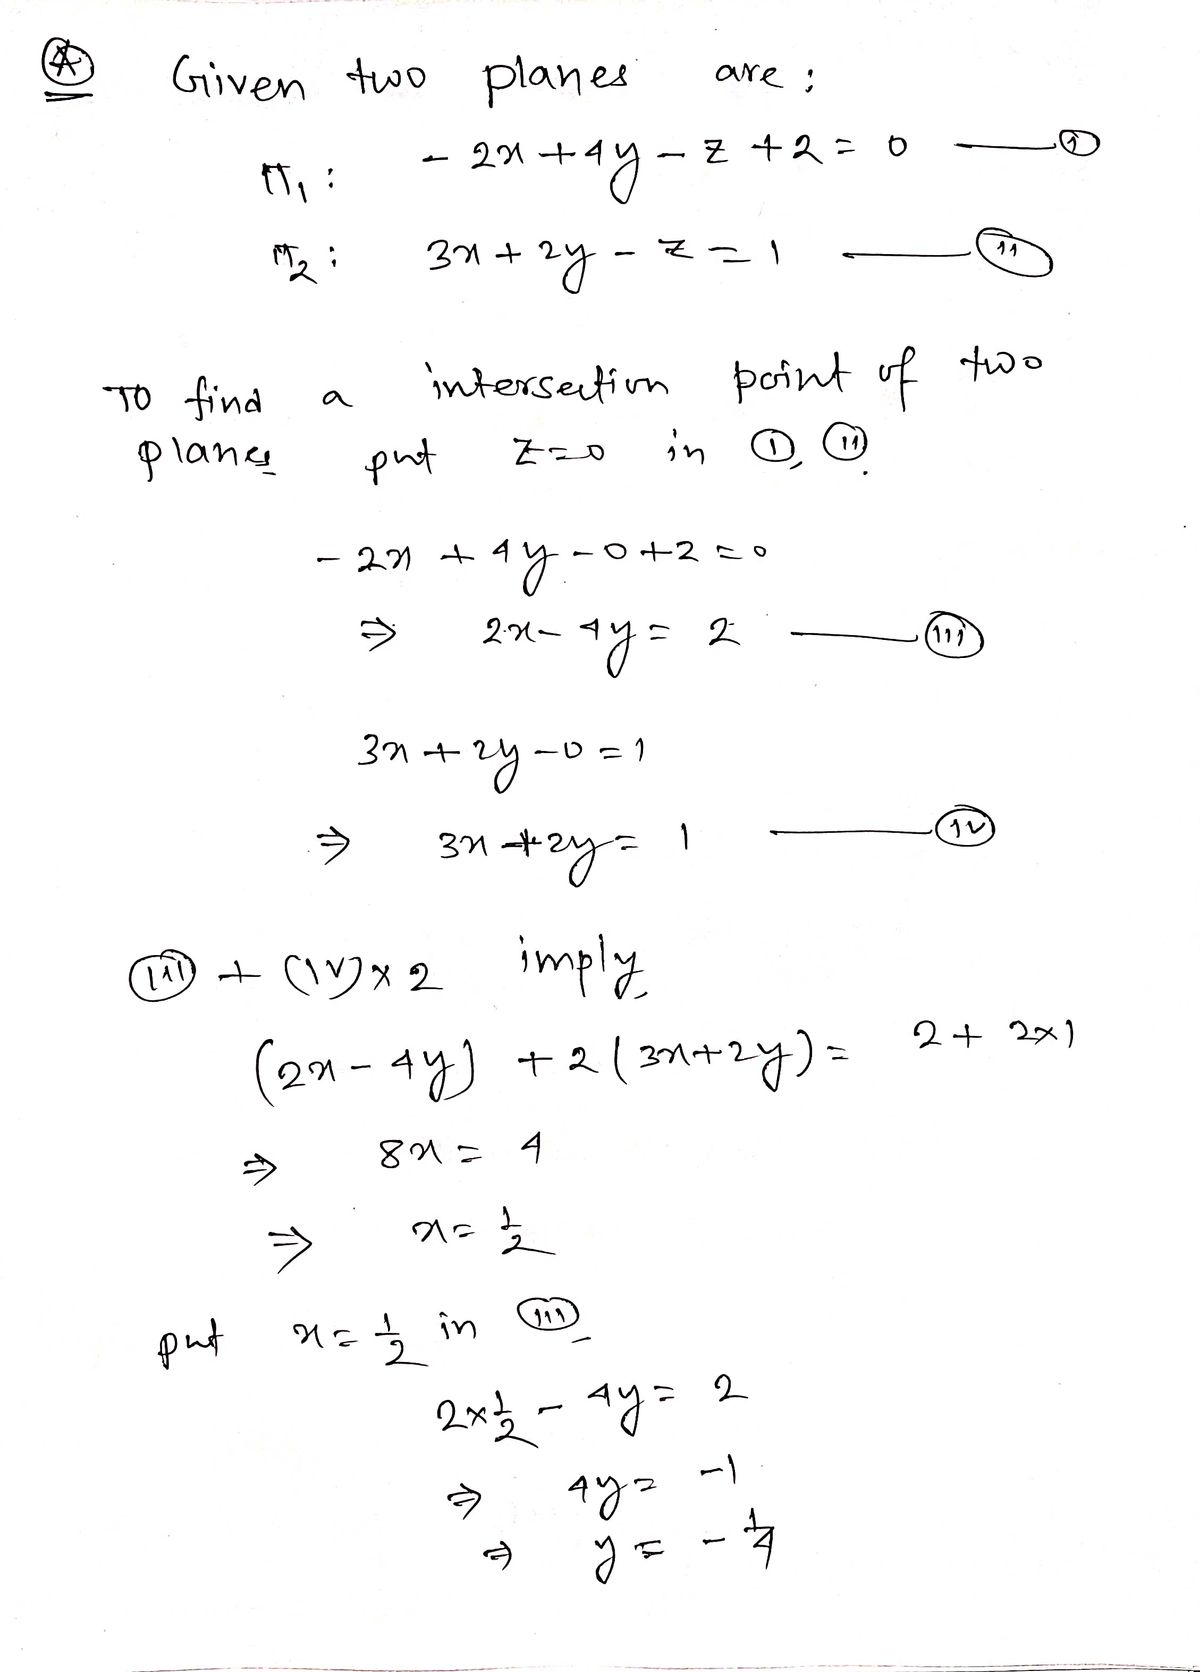 Ⓐ Given two planes are :
π₁ : - 2x + 4y - z + 2 = 0 —— (i)
π₂ : 3x + 2y - z = 1 —— (ii)
To find a intersection point of two
planes put z=0 in (i), (ii).
- 2x + 4y - 0 + 2 = 0
⇒ 2x - 4y = 2 —— (iii)
3x + 2y - 0 = 1
⇒ 3x + 2y = 1 —— (iv)
(iii) + (iv) × 2 imply,
(2x - 4y) + 2(3x+2y) = 2 + 2×1
⇒ 8x = 4
⇒ x = 1/2
put x = 1/2 in (iii)
2×1/2 - 4y = 2
⇒ 4y = -1
⇒ y = - 1/4